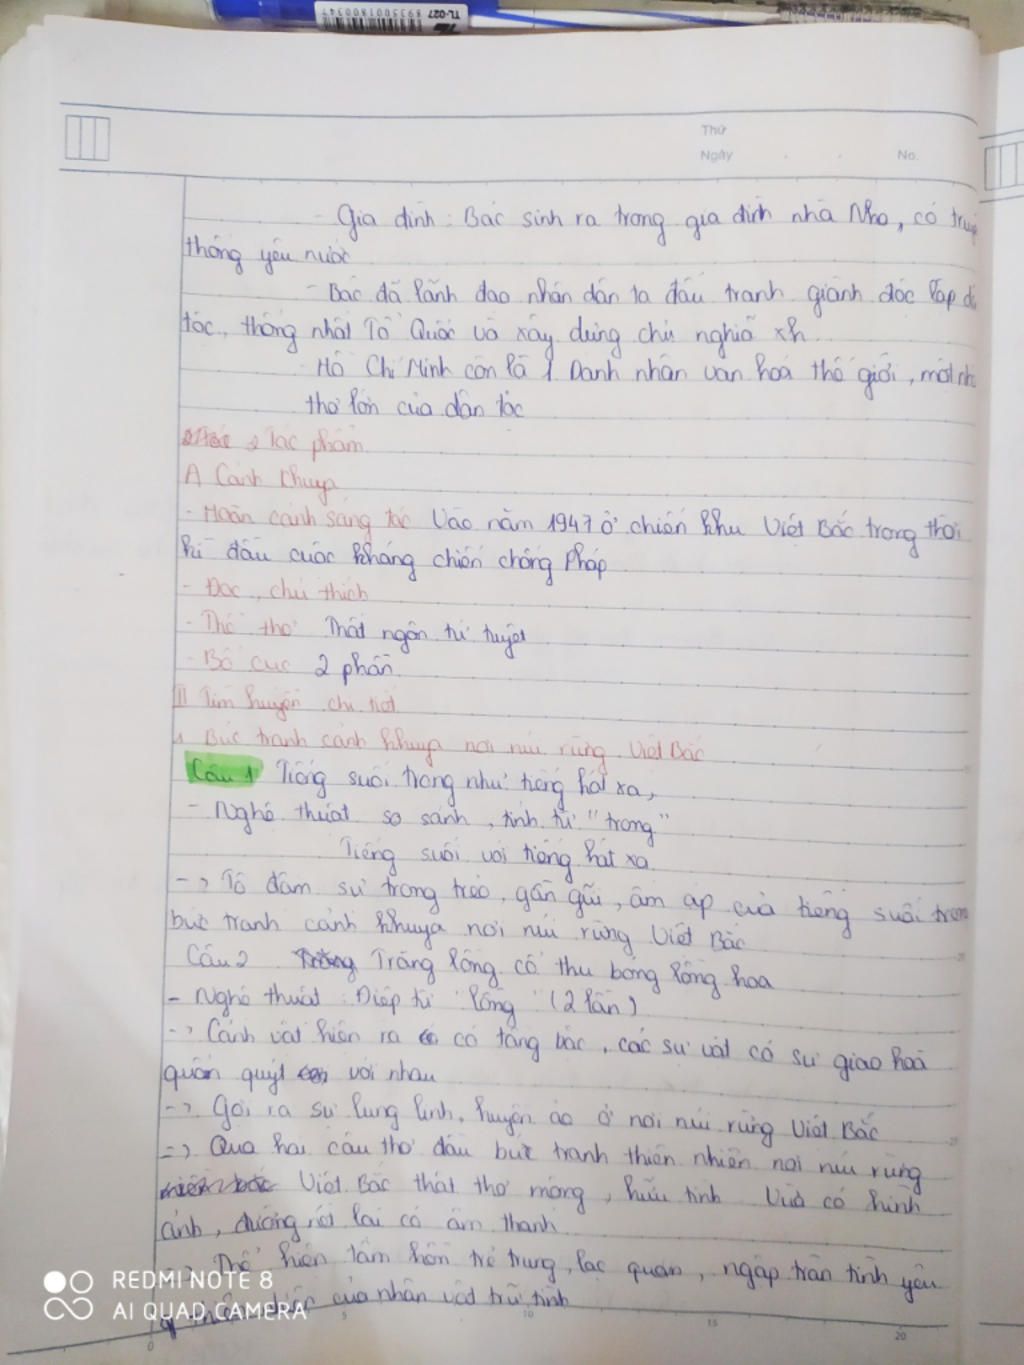 TL-027 8935001800347
Thứ
Ngày No.
- Gia đình: Bác sinh ra trong gia đình nhà Nho, có
thống yêu nước
- Bác đã lãnh đạo nhân dân ta đấu tranh giành độc lập
tộc, thống nhất Tổ Quốc và xây dựng chủ nghĩa xh
Hồ Chí Minh còn là 1 Danh nhân văn hoá thế giới, một
thơ lớn của dân tộc
2 Tác phẩm
A Cảnh khuya
- Hoàn cảnh sáng tác Vào năm 1947 ở chiến khu Việt Bắc trong thời
kì đầu cuộc kháng chiến chống Pháp
- Đọc, chú thích
- Thể thơ Thất ngôn tứ tuyệt
- Bố cục 2 phần
II Tìm huyện chi tiết
1 Bức tranh cảnh khuya nơi núi rừng Việt Bắc
Câu 1 Tiếng suối trong như tiếng hát xa,
- Nghệ thuật so sánh, tính từ "trong"
Tiếng suối với tiếng hát xa
-> Tô đậm sự trong trẻo, gần gũi, ấm áp của tiếng suối trong
bức tranh cảnh khuya nơi núi rừng Việt Bắc
Câu 2 Trăng lồng cổ thụ bóng lồng hoa
- Nghệ thuật: Điệp từ "lồng" (2 lần)
-> Cảnh vật hiện ra có tầng bậc, các sự vật có sự giao hoà
quấn quýt với nhau
-> Gợi ra sự lung linh, huyền ảo ở nơi núi rừng Việt Bắc
=> Qua hai câu thơ đầu bức tranh thiên nhiên nơi núi rừng
Việt Bắc thật thơ mộng, hữu tình Vừa có hình
ảnh, đường nét lại có âm thanh
-> Thể hiện tâm hồn trẻ trung, lạc quan, ngập tràn tình yêu
của nhân vật trữ tình
REDMI NOTE 8
AI QUAD CAMERA
0 5 10 15 20